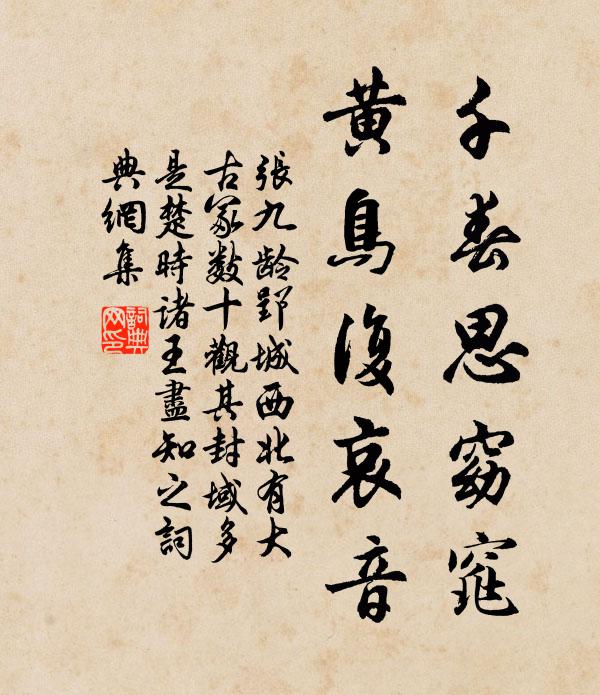 千春思窈窕
黄鳥復哀音
張九龄郢城西北有大
古冢数十觀其封域多
是楚時諸王盡知之詞
典網集
詞典
网印